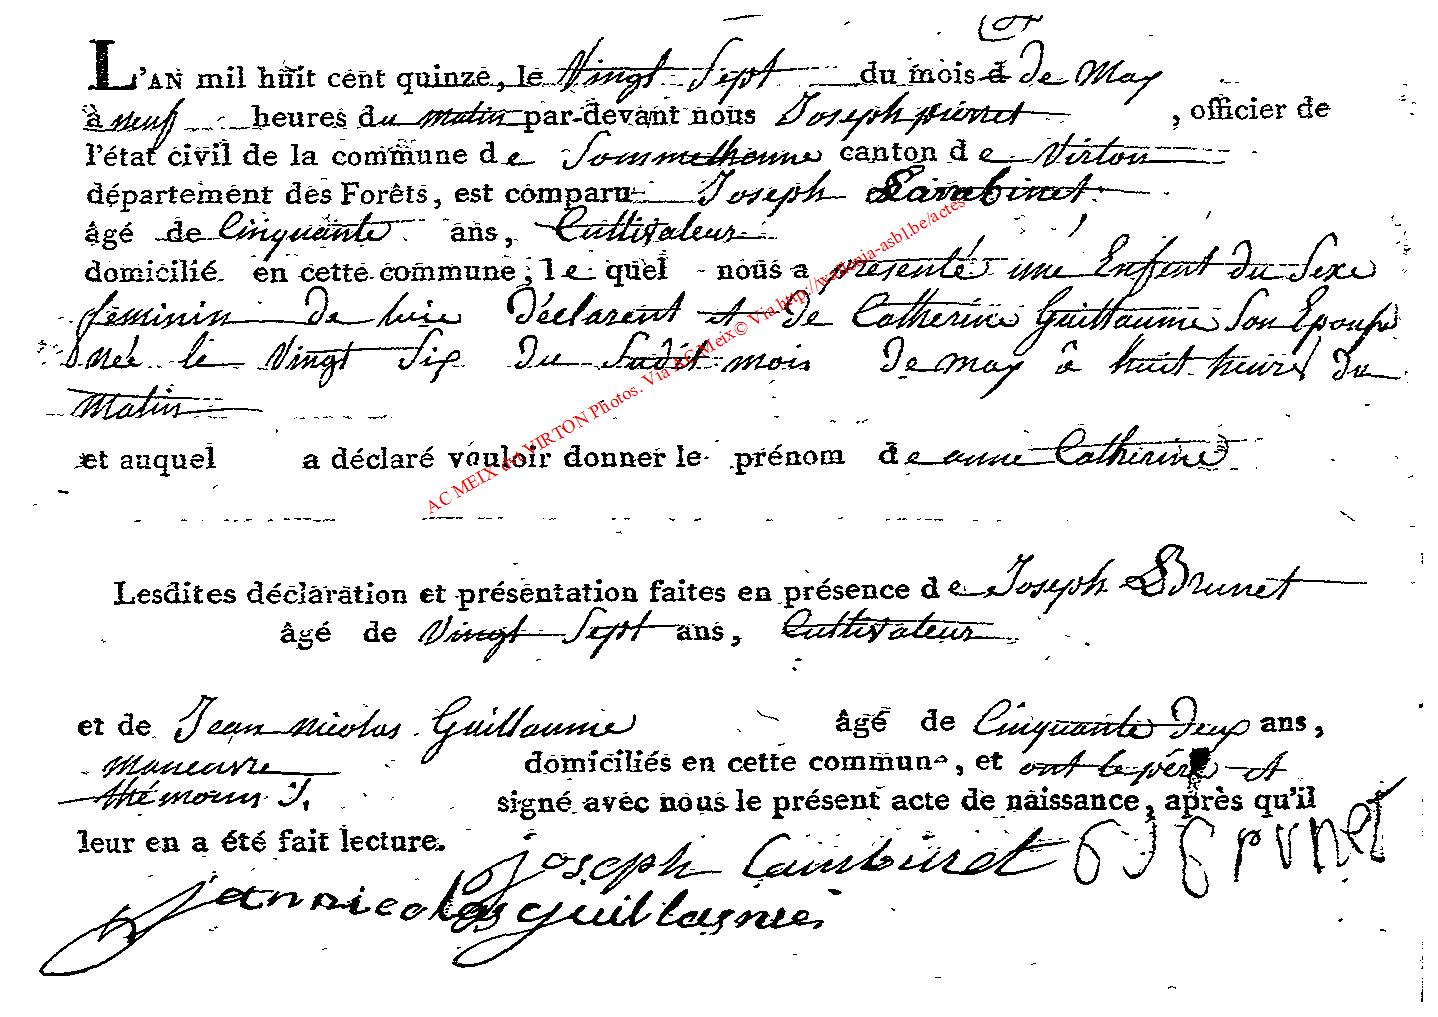 L'AN mil huit cent quinze, le Vingt Sept du mois d de May
à neuf heures du matin par-devant nous Joseph pierret, officier de
l'état civil de la commune de Sommethonne canton de Virton
département des Forêts, est comparu Joseph Lambinet
âgé de Cinquante ans, Cultivateur
domicilié en cette commune, le quel nous a présenté une Enfent du Sexe
feminin de luie Déclarent et de Catherine Guillaume Son Epouse
née le Vingt Six du Sudit mois de may à huit heures du
matin
et auquel a déclaré vouloir donner le prénom de anne Catherine
Lesdites déclaration et présentation faites en présence de Joseph Brunet
âgé de Vingt Sept ans, Cultivateur
et de Jean nicolas Guillaume âgé de Cinquante deux ans,
maneuvre domiciliés en cette commune, et ont le père et
thémoins signé avec nous le présent acte de naissance, après qu'il
leur en a été fait lecture.
joseph Lambinet
jannicolas guillaume
AC MEIX dvt VIRTON Photos. Via AC Meix© Via http://wallonia-asbl.be/actes